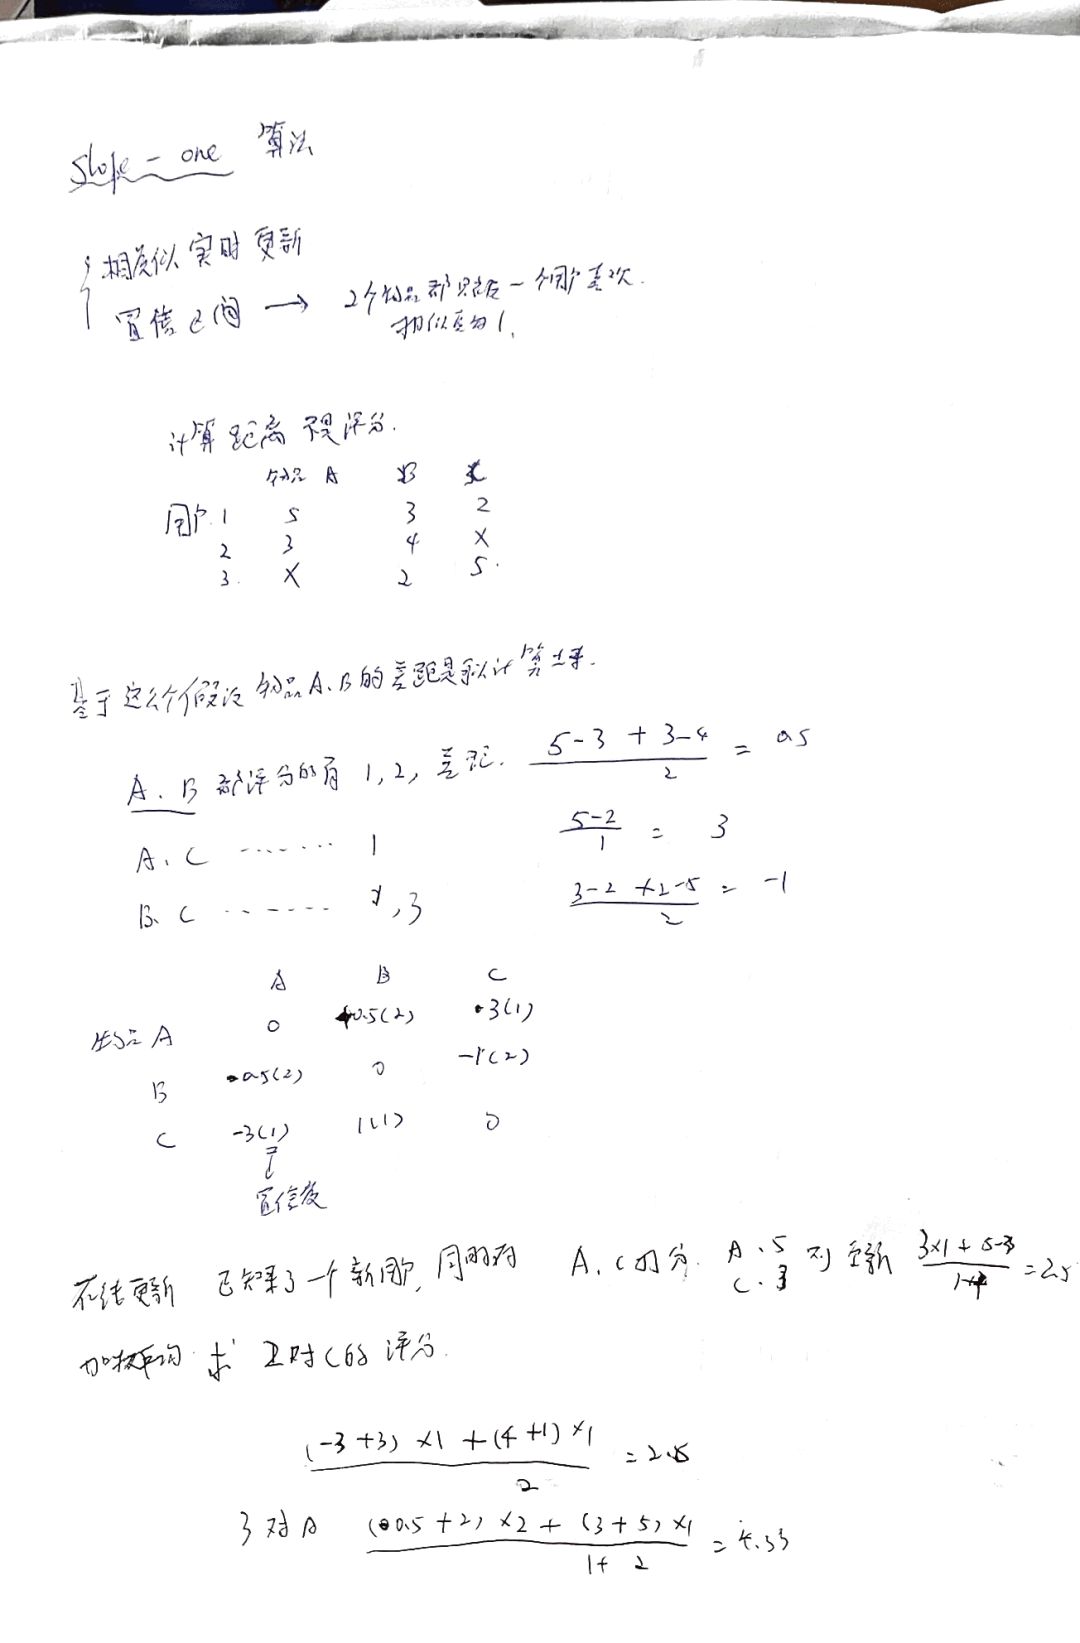 slope-one 算法
相关似 实时 更新
置信区间 → 2个物品都只被一个用户喜欢.
相似度为1.
计算距离 评分.
物品 A B C
用户 1 5 3 2
2 3 4 X
3. X 2 5.
基于这么个假设 物品A、B的差距是可以计算出来.
A. B 都评分的有 1, 2, 差距. (5-3 + 3-4)/2 = 0.5
A. C ········ 1 (5-2)/1 = 3
B. C ······· 1, 3 (3-2 +2-5)/2 = -1
A B C
物品 A 0 0.5(2) 3(1)
B -0.5(2) 0 -1(2)
C -3(1) 1(1) 0
置信度
在线更新 已知来了一个新用户, 同时对 A. C 打分. A. 5 C. 3 则 更新 (3×1 + 5-3)/(1+1) = 2.5
加权平均 求 2对C的评分.
((-3+3) ×1 + (4+1) ×1)/2 = 2.5
3 对 A ((0.5+2) ×2 + (3+5) ×1)/(1+2) = 4.33